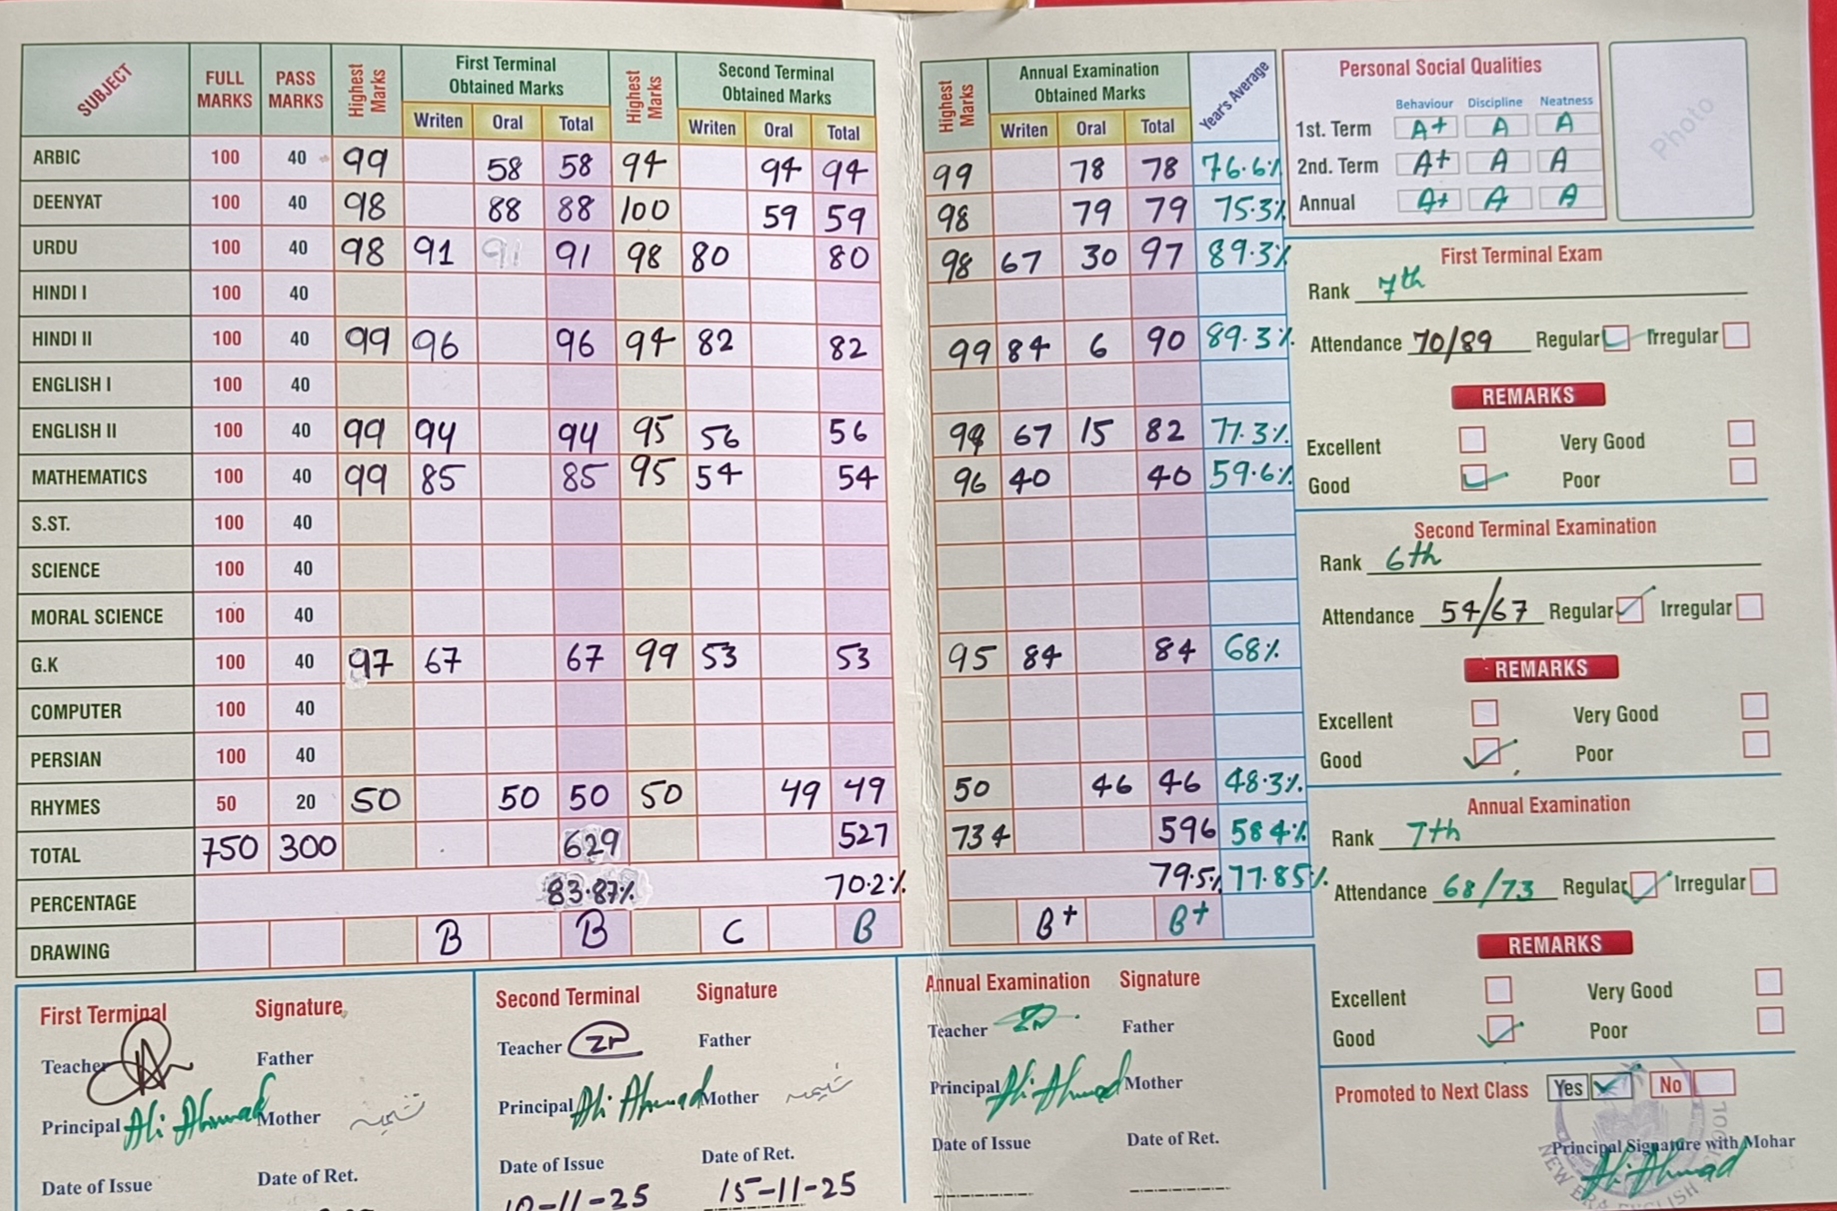 SUBJECT FULL MARKS PASS MARKS Highest Marks First Terminal Obtained Marks Highest Marks Second Terminal Obtained Marks Highest Marks Annual Examination Obtained Marks Year's Average
Writen Oral Total Writen Oral Total Writen Oral Total
ARBIC 100 40 99 58 58 94 94 94 99 78 78 76.6%
DEENYAT 100 40 98 88 88 100 59 59 98 79 79 75.3%
URDU 100 40 98 91 91 91 98 80 80 98 67 30 97 89.3%
HINDI I 100 40
HINDI II 100 40 99 96 96 94 82 82 99 84 6 90 89.3%
ENGLISH I 100 40
ENGLISH II 100 40 99 94 94 95 56 56 99 67 15 82 77.3%
MATHEMATICS 100 40 99 85 85 95 54 54 96 40 40 59.6%
S.ST. 100 40
SCIENCE 100 40
MORAL SCIENCE 100 40
G.K 100 40 97 67 67 99 53 53 95 84 84 68%
COMPUTER 100 40
PERSIAN 100 40
RHYMES 50 20 50 50 50 50 49 49 50 46 46 48.3%
TOTAL 750 300 629 527 734 596 584%
PERCENTAGE 83.87% 70.2% 79.5% 77.85%
DRAWING B B C B B+ B+
Personal Social Qualities
Behaviour Discipline Neatness
1st. Term A+ A A
2nd. Term A+ A A
Annual A+ A A
Photo
First Terminal Exam
Rank 7th
Attendance 70/89 Regular Irregular
REMARKS
Excellent Very Good
Good Poor
Second Terminal Examination
Rank 6th
Attendance 54/67 Regular Irregular
REMARKS
Excellent Very Good
Good Poor
Annual Examination
Rank 7th
Attendance 68/73 Regular Irregular
REMARKS
Excellent Very Good
Good Poor
Promoted to Next Class Yes No
Principal Signature with Mohar
Ali Ahmad
NEW ERA ENGLISH
First Terminal Signature
Teacher Father
Principal Ali Ahmad Mother
Date of Issue Date of Ret.
Second Terminal Signature
Teacher ZN Father
Principal Ali Ahmad Mother
Date of Issue Date of Ret.
10-11-25 15-11-25
Annual Examination Signature
Teacher Father
Principal Ali Ahmad Mother
Date of Issue Date of Ret.